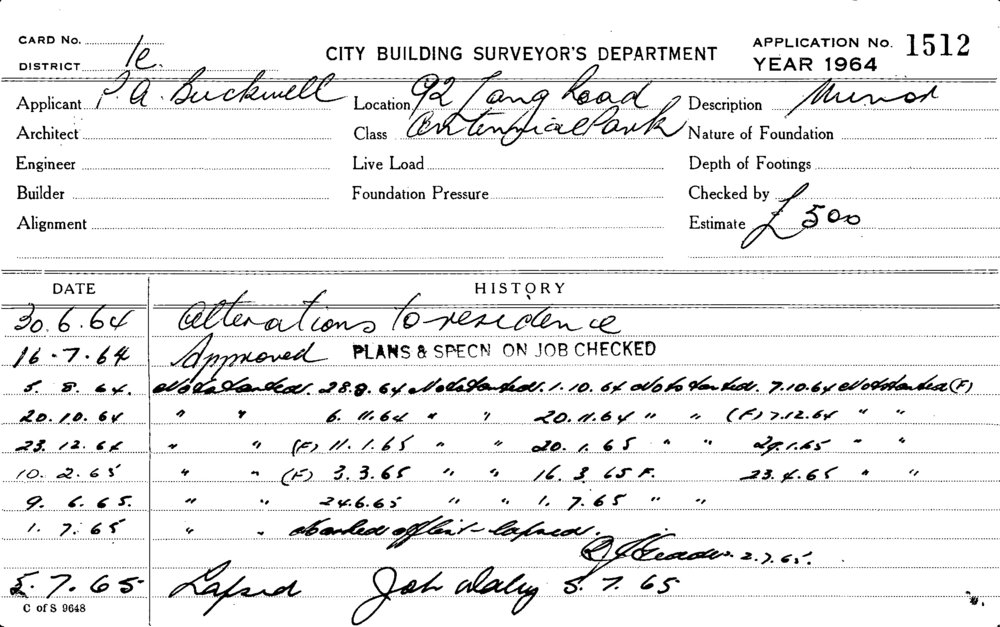 CARD No.
DISTRICT 1c.
CITY BUILDING SURVEYOR'S DEPARTMENT
APPLICATION No. 1512
YEAR 1964
Applicant P. A. Buckwell Location 92 Lang Road Description Minor
Architect Class Centennial Park Nature of Foundation
Engineer Live Load Depth of Footings
Builder Foundation Pressure Checked by
Alignment Estimate £500
DATE HISTORY
30.6.64 Alterations to residence
16-7-64 Approved PLANS & SPECN ON JOB CHECKED
5. 8. 64. Not started. 28.8.64 Not started. 1.10.64 Not started. 7.10.64 Not started (F)
20.10.64 " " 6.11.64 " " 20.11.64 " " (F) 7.12.64 " "
23.12.64 " " (F) 11.1.65 " " 20.1.65 " " 29.1.65 " "
10.2.65 " " (F) 3.3.65 " " 16.3.65 F. 23.4.65 " "
9.6.65. " " 24.6.65 " " 1.7.65 " "
1.7.65 " " Marked off list - lapsed.
2.7.65.
5.7.65 Lapsed Job 5.7.65
C of S 9648